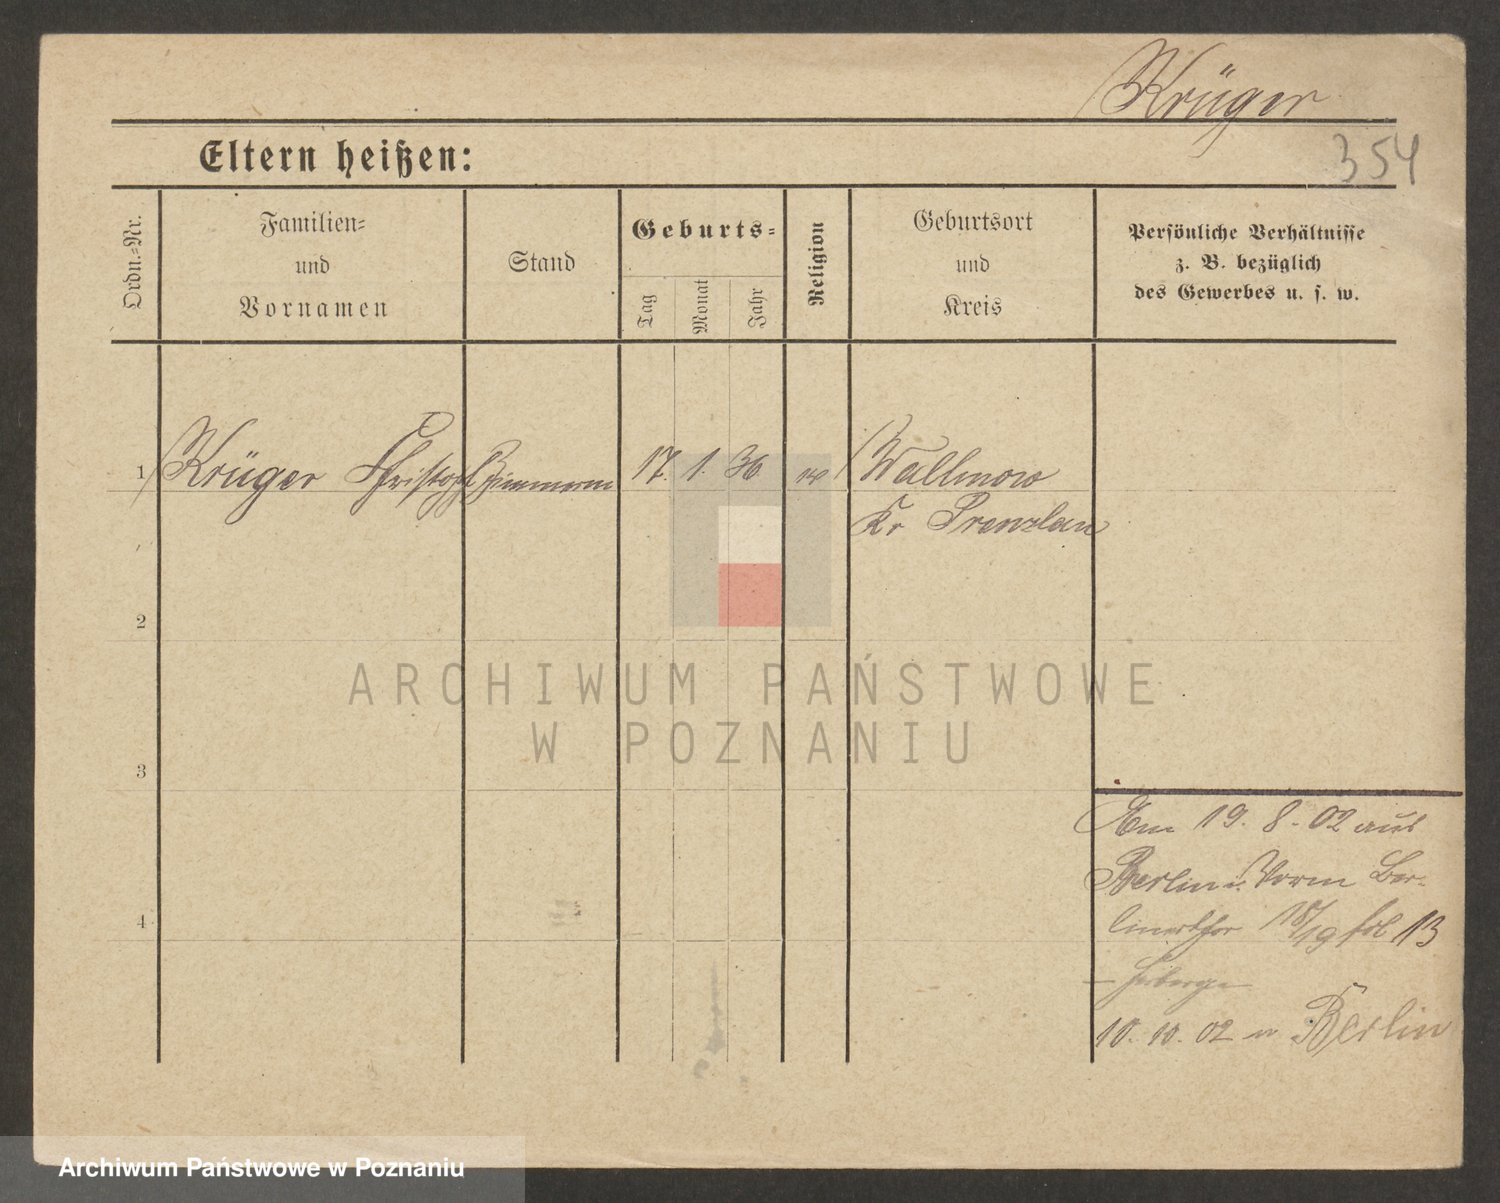 Krüger
354
Eltern heißen:
Ordn.-Nr.
Familien-
und
Vornamen
Stand
Geburts-
Tag
Monat
Jahr
Religion
Geburtsort
und
Kreis
Persönliche Verhältnisse
z. B. bezüglich
des Gewerbes u. s. w.
1 Krüger Christoph Zimmerm 17. 1. 36 ev Wallmow
Kr Prenzlau
2
ARCHIWUM PAŃSTWOWE
W POZNANIU
3
Am 19. 8. 02 aus
Berlin n. Ber-
linerthor 18/19 13
Herberge
10. 10. 02 n Berlin
4
Archiwum Państwowe w Poznaniu